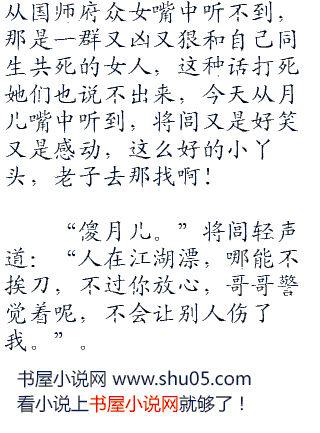 从国师府众女嘴中听不到，
那是一群又凶又狠和自己同
生共死的女人，这种话打死
她们也说不出来，今天从月
儿嘴中听到，将闾又是好笑
又是感动，这么好的小丫
头，老子去那找啊！
“傻月儿。”将闾轻声
道：“人在江湖漂，哪能不
挨刀，不过你放心，哥哥警
觉着呢，不会让别人伤了
我。”。
书屋小说网 www.shu05.com
看小说上书屋小说网就够了！